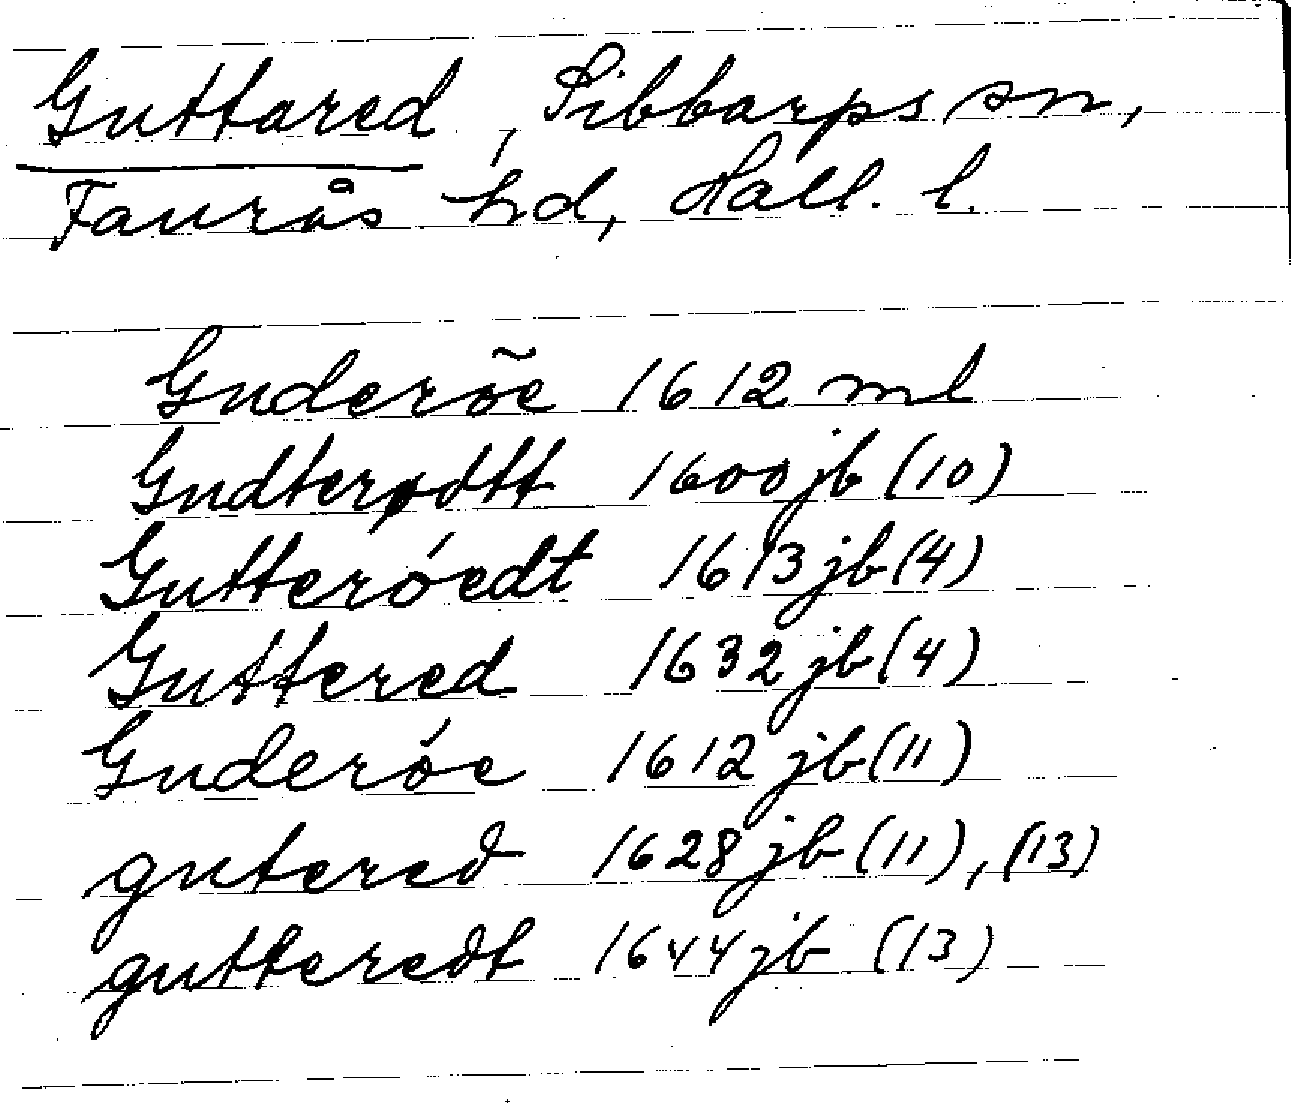 Guttared, Sibbarps sn,
Faurås hd, Hall. l.
Guderõe 1612 ml
Gudterødtt 1600 jb (10)
Gutteróedt 1613 jb (4)
Guttered 1632 jb (4)
Guderóe 1612 jb (11)
gutered 1628 jb (11), (13)
gutteredt 1644 jb (13)